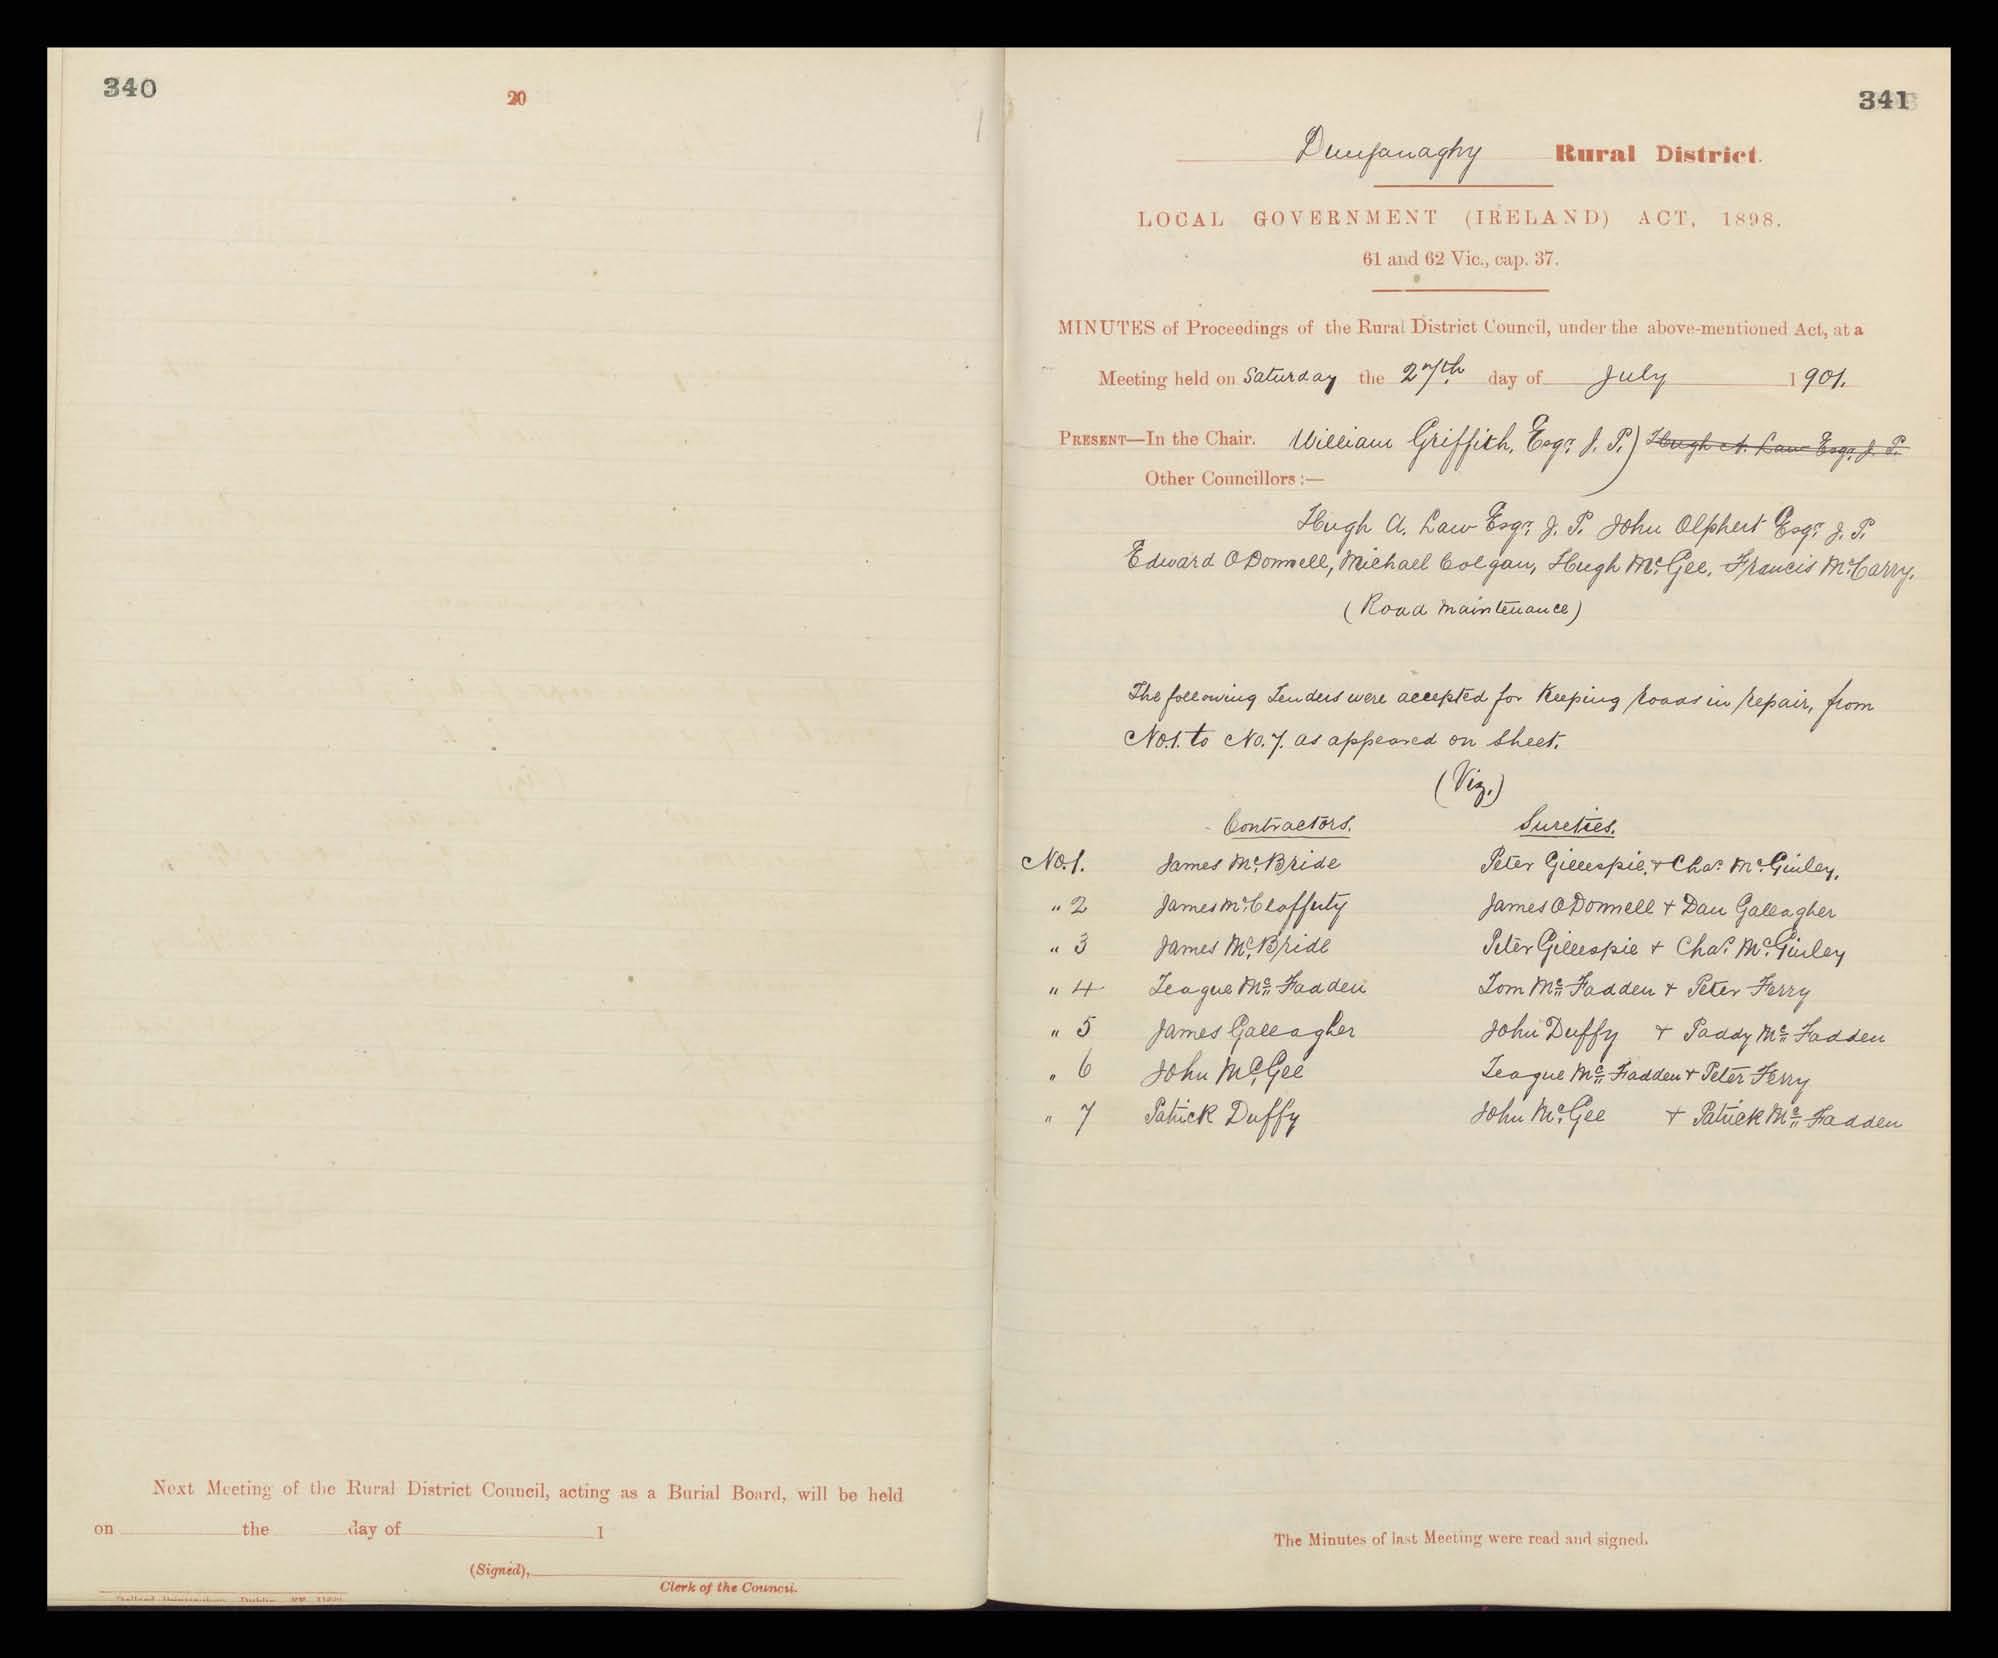 340
20
Next Meeting of the Rural District Council, acting as a Burial Board, will be held
on the day of 1
(Signed),
Clerk of the Council.
341
Dunfanaghy Rural District.
LOCAL GOVERNMENT (IRELAND) ACT, 1898.
61 and 62 Vic., cap. 37.
MINUTES of Proceedings of the Rural District Council, under the above-mentioned Act, at a
Meeting held on Saturday the 27th day of July 1901.
PRESENT—In the Chair. William Griffith, Esqr. J. P.) Hugh A. Law Esqr. J. P.
Other Councillors :—
Hugh A. Law Esqr. J. P. John Olphert Esqr. J. P.
Edward O'Donnell, Michael Colgan, Hugh McGee, Francis McCarry.
(Road Maintenance)
The following Tenders were accepted for Keeping roads in repair, from
No.1. to No.7. as appeared on Sheet.
(Viz.)
Contractors. Sureties.
No.1. James McBride Peter Gillespie, + Chas. McGinley.
" 2 James McClafferty James O'Donnell + Dan Gallagher
" 3 James McBride Peter Gillespie + Chas. McGinley
" 4 Teague McFadden Tom McFadden + Peter Ferry
" 5 James Gallagher John Duffy + Paddy McFadden
" 6 John McGee Teague McFadden + Peter Ferry
" 7 Patrick Duffy John McGee + Patrick McFadden
The Minutes of last Meeting were read and signed.